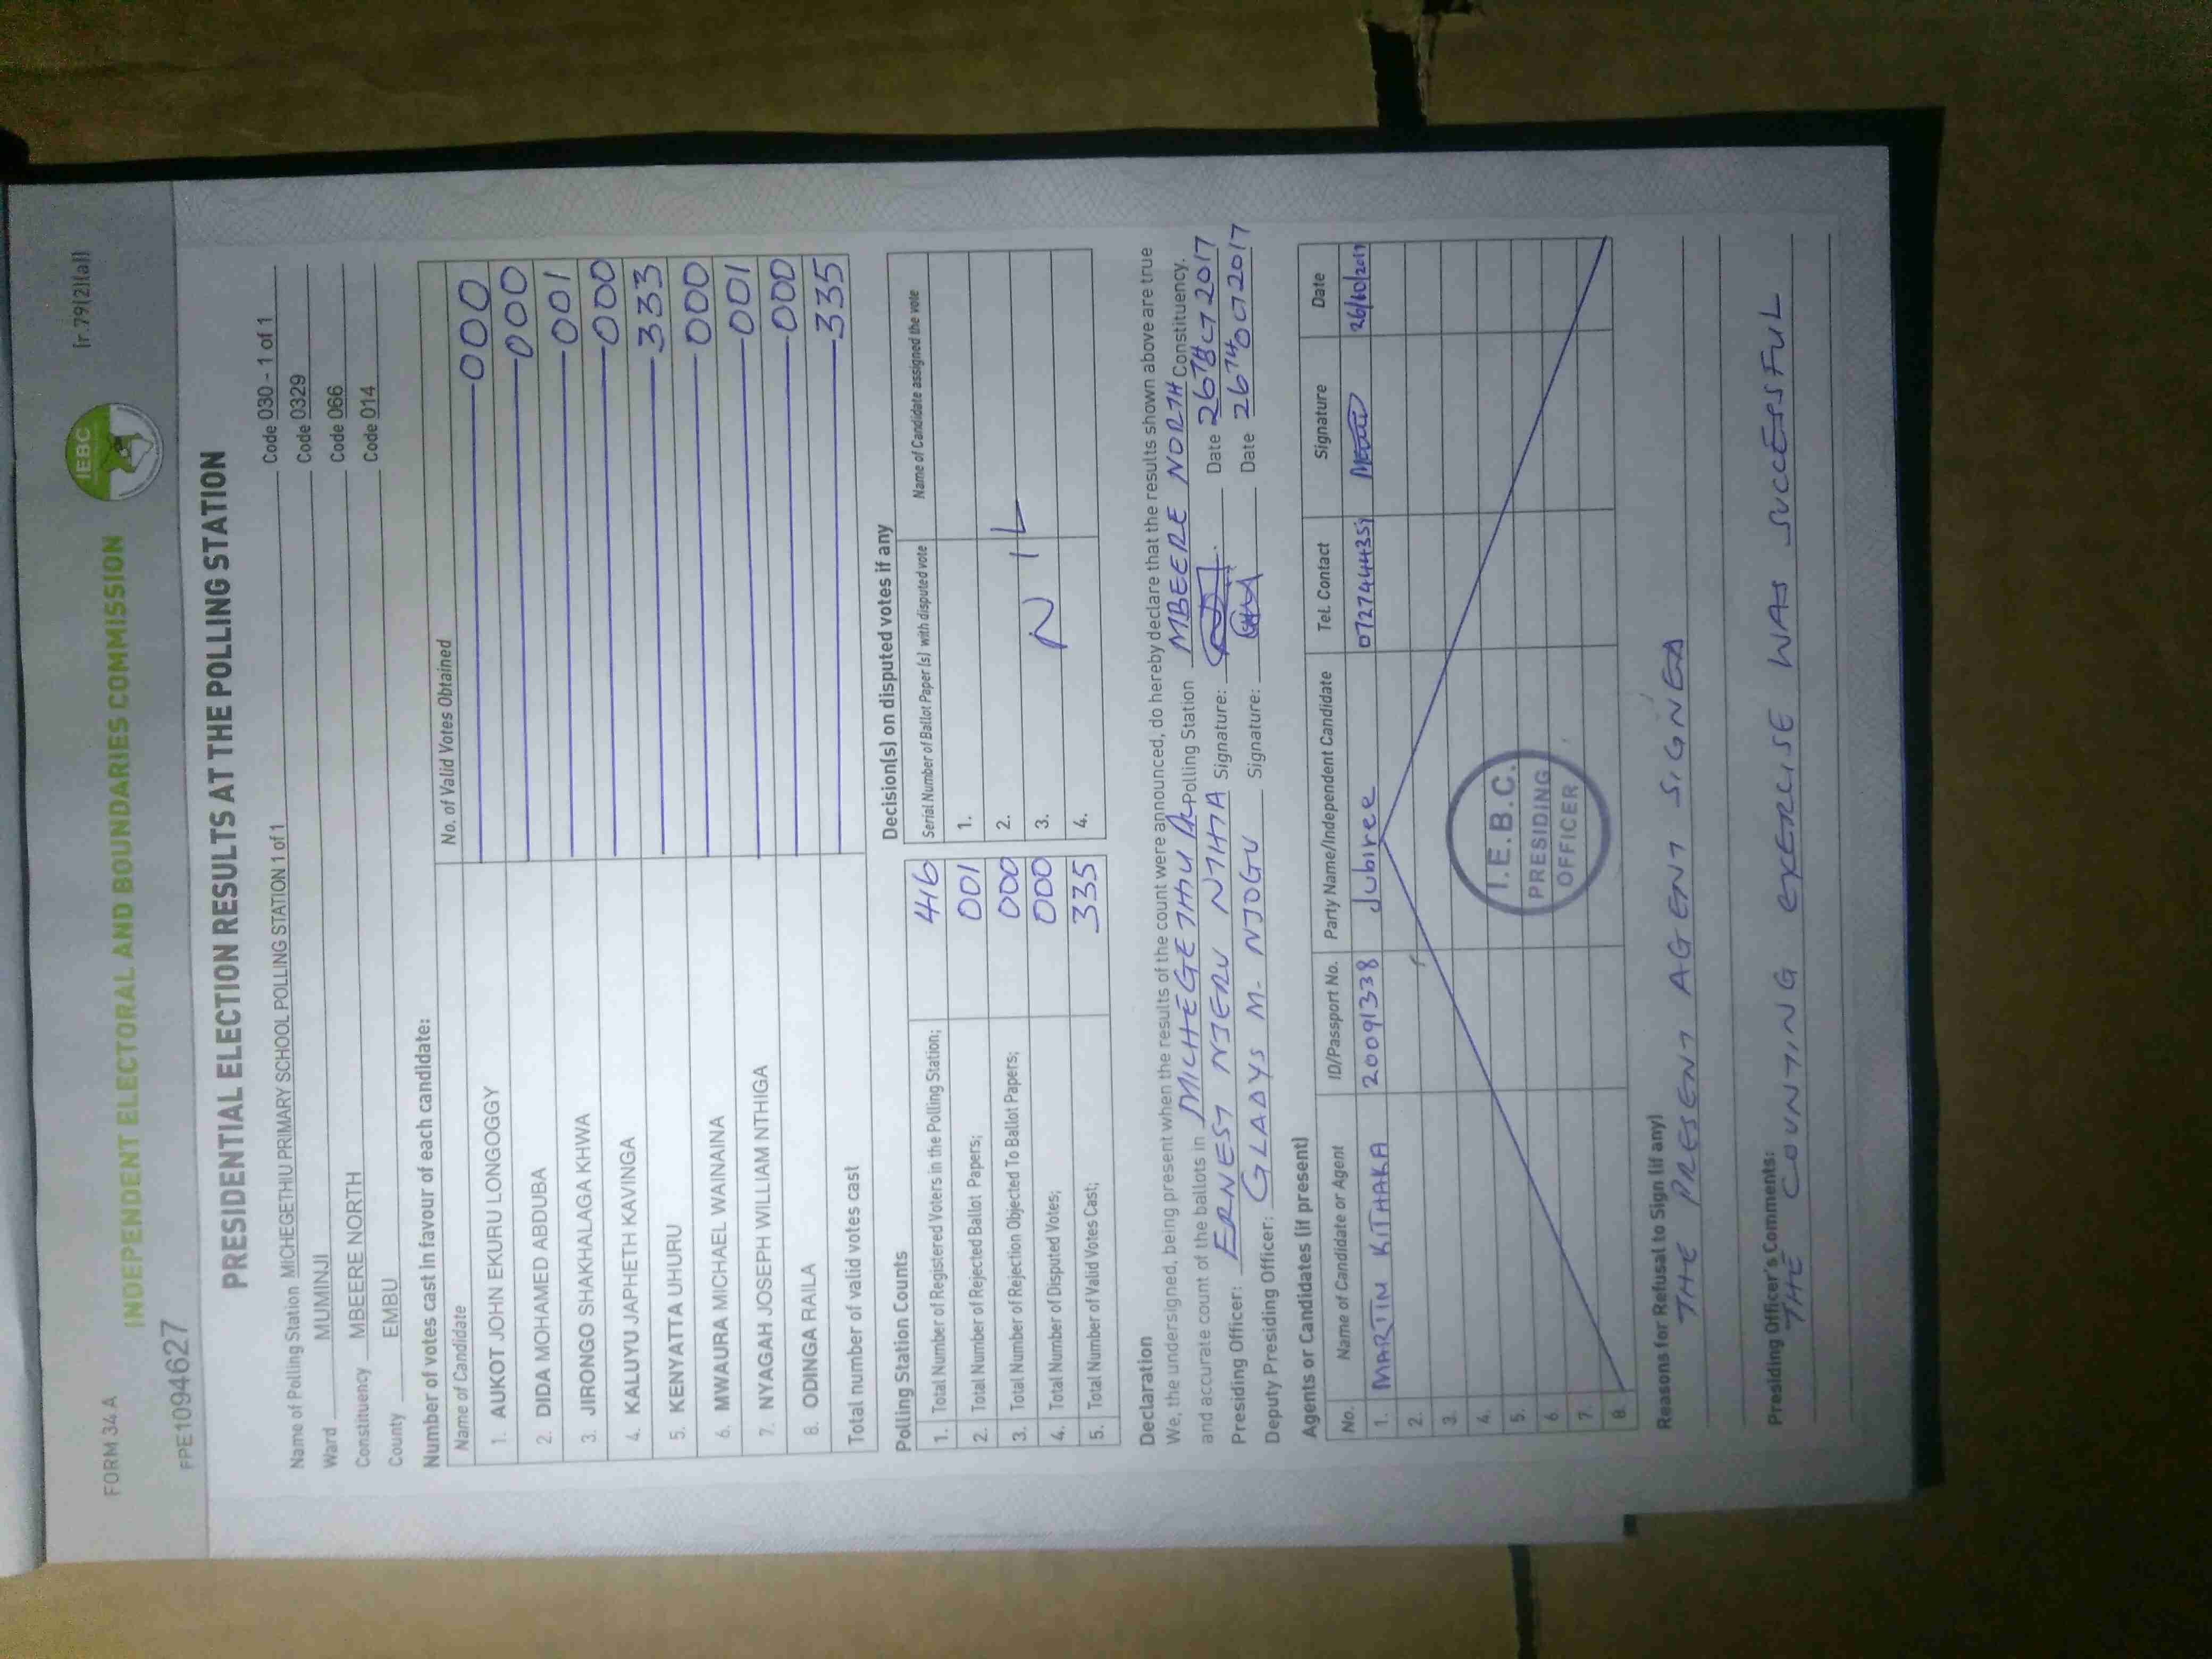 FORM 34A
INDEPENDENT ELECTORAL AND BOUNDARIES COMMISSION
IEBC
[r.79(2)(a)]
FPE1094627
PRESIDENTIAL ELECTION RESULTS AT THE POLLING STATION
Name of Polling Station MICHEGETHIU PRIMARY SCHOOL POLLING STATION 1 of 1 Code 030 - 1 of 1
Ward MUMINJI Code 0329
Constituency MBEERE NORTH Code 066
County EMBU Code 014
Number of votes cast in favour of each candidate:
Name of Candidate No. of Valid Votes Obtained
1. AUKOT JOHN EKURU LONGOGGY 000
2. DIDA MOHAMED ABDUBA 000
3. JIRONGO SHAKHALAGA KHWA 001
4. KALUYU JAPHETH KAVINGA 000
5. KENYATTA UHURU 333
6. MWAURA MICHAEL WAINAINA 000
7. NYAGAH JOSEPH WILLIAM NTHIGA 001
8. ODINGA RAILA 000
Total number of valid votes cast 335
Polling Station Counts
1. Total Number of Registered Voters in the Polling Station; 416
2. Total Number of Rejected Ballot Papers; 001
3. Total Number of Rejection Objected To Ballot Papers; 000
4. Total Number of Disputed Votes; 000
5. Total Number of Valid Votes Cast; 335
Decision(s) on disputed votes if any
Serial Number of Ballot Paper(s) with disputed vote Name of Candidate assigned the vote
1.
2.
3. NIL
4.
Declaration
We, the undersigned, being present when the results of the count were announced, do hereby declare that the results shown above are true
and accurate count of the ballots in MICHEGETHIU Polling Station MBEERE NORTH Constituency.
Presiding Officer: ERNEST NJERU NTHIA Signature: Date 26TH OCT 2017
Deputy Presiding Officer: GLADYS M. NJOGU Signature: Date 26TH OCT 2017
Agents or Candidates (if present)
No. Name of Candidate or Agent ID/Passport No. Party Name/Independent Candidate Tel. Contact Signature Date
1. MARTIN KITHAKA 20091338 Jubiree 0727444359 26/10/2017
2.
3.
4.
5.
6.
7.
8.
I.E.B.C.
PRESIDING
OFFICER
Reasons for Refusal to Sign (if any)
THE PRESENT AGENT SIGNED
Presiding Officer's Comments:
THE COUNTING EXERCISE WAS SUCCESSFUL